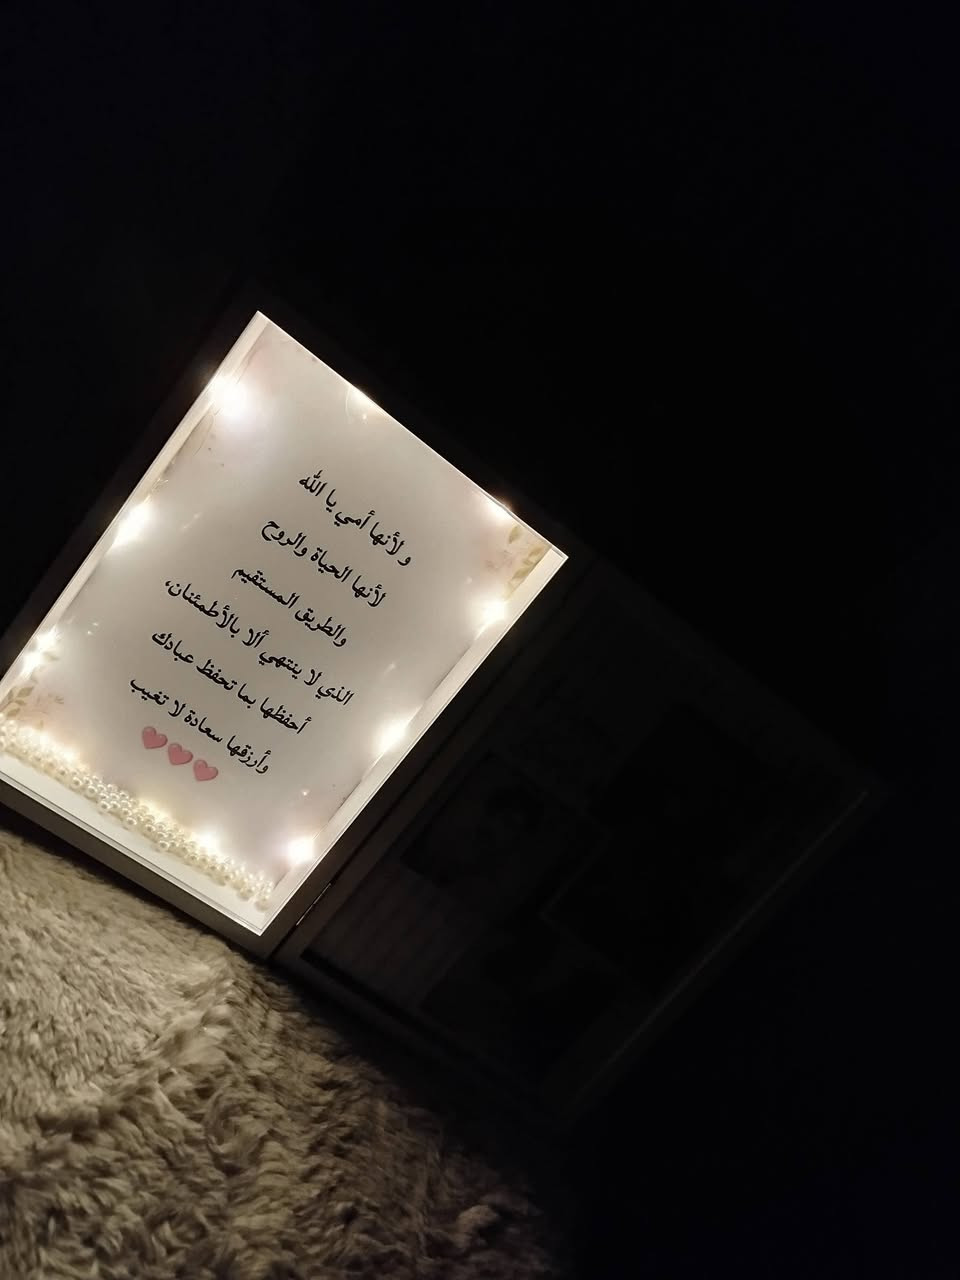 و لأنها أمي يا الله
لأنها الحياة والروح
والطريق المستقيم
الذي لا ينتهي ألا بالأطمئنان،
أحفظها بما تحفظ عبادك
وأرزقها سعادة لا تغيب